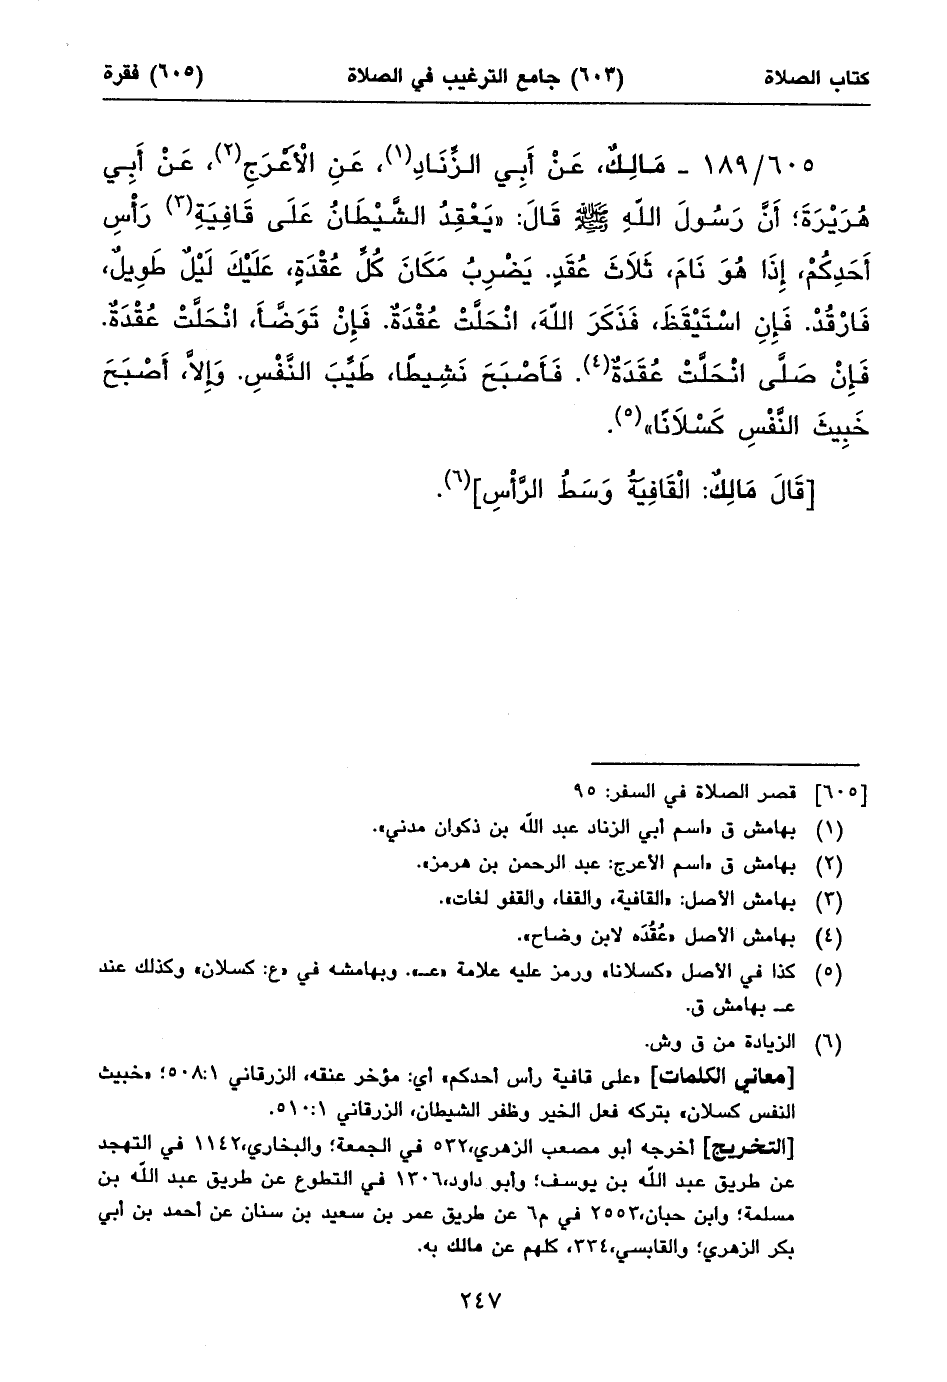 كتاب الصلاة (٦٠٣) جامع الترغيب في الصلاة (٦٠٥) فقرة
١٨٩/٦٠٥ - مَالِكٌ، عَنْ أَبِي الزِّنَادِ(١)، عَنِ الْأَعْرَجِ(٢)، عَنْ أَبِي
هُرَيْرَةَ؛ أَنَّ رَسُولَ اللّهِ ﷺ قَالَ: «يَعْقِدُ الشَّيْطَانُ عَلَى قَافِيَةِ(٣) رَأْسِ
أَحَدِكُمْ، إِذَا هُوَ نَامَ، ثَلَاثَ عُقَدٍ. يَضْرِبُ مَكَانَ كُلِّ عُقْدَةٍ، عَلَيْكَ لَيْلٌ طَوِيلٌ،
فَارْقُدْ. فَإِنِ اسْتَيْقَظَ، فَذَكَرَ اللّهَ، انْحَلَّتْ عُقْدَةٌ. فَإِنْ تَوَضَّأَ، انْحَلَّتْ عُقْدَةٌ.
فَإِنْ صَلَّى انْحَلَّتْ عُقَدَةٌ(٤). فَأَصْبَحَ نَشِيطًا، طَيِّبَ النَّفْسِ. وَإِلاَّ، أَصْبَحَ
خَبِيثَ النَّفْسِ كَسْلَانًا»(٥).
[قَالَ مَالِكٌ: الْقَافِيَةُ وَسَطُ الرَّأْسِ](٦).
[٦٠٥] قصر الصلاة في السفر: ٩٥
(١) بهامش ق «اسم أبي الزناد عبد اللّه بن ذكوان مدني».
(٢) بهامش ق «اسم الأعرج: عبد الرحمن بن هرمز».
(٣) بهامش الأصل: «القافية، والقفا، والقفو لغات».
(٤) بهامش الأصل «عُقُدَه لابن وضاح».
(٥) كذا في الأصل «كسلانا» ورمز عليه علامة «عـ». وبهامشه في «ع: كسلان» وكذلك عند
عـ بهامش ق.
(٦) الزيادة من ق وش.
[معاني الكلمات] «على قافية رأس أحدكم» أي: مؤخر عنقه، الزرقاني ٥٠٨:١؛ «خبيث
النفس كسلان» بتركه فعل الخير وظفر الشيطان، الزرقاني ٥١٠:١.
[التخريج] أخرجه أبو مصعب الزهري،٥٣٢ في الجمعة؛ والبخاري،١١٤٢ في التهجد
عن طريق عبد اللّه بن يوسف؛ وأبو داود،١٣٠٦ في التطوع عن طريق عبد اللّه بن
مسلمة؛ وابن حبان،٢٥٥٣ في م٦ عن طريق عمر بن سعيد بن سنان عن أحمد بن أبي
بكر الزهري؛ والقابسي،٣٣٤، كلهم عن مالك به.
٢٤٧